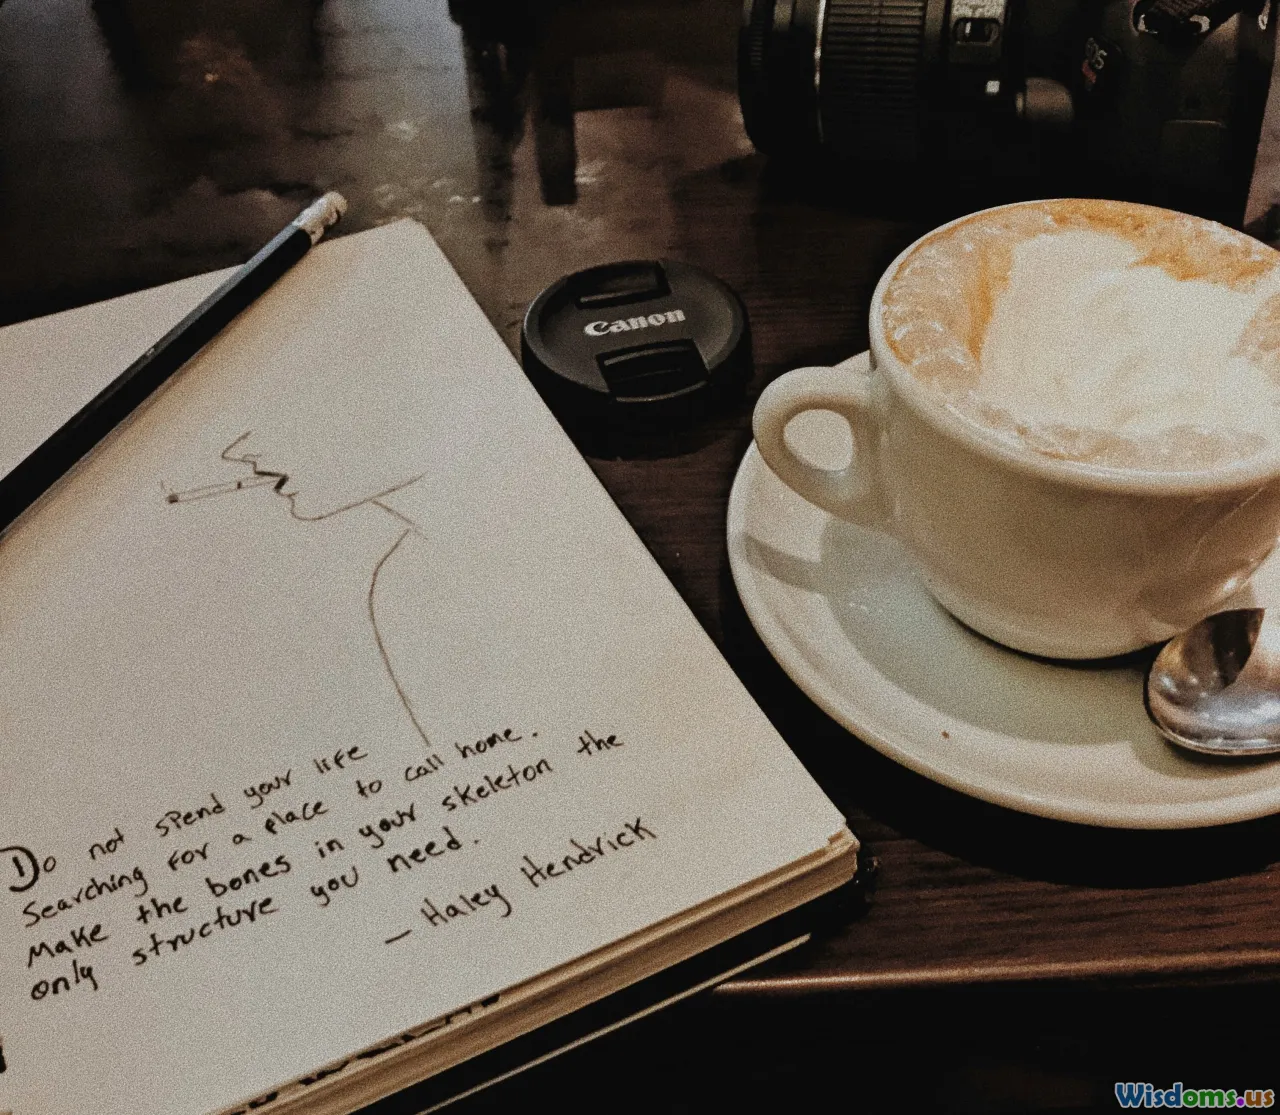 Canon
Do not spend your life
searching for a place to call home.
Make the bones in your skeleton the
only structure you need.
— Haley Hendrick
Wisdoms.us